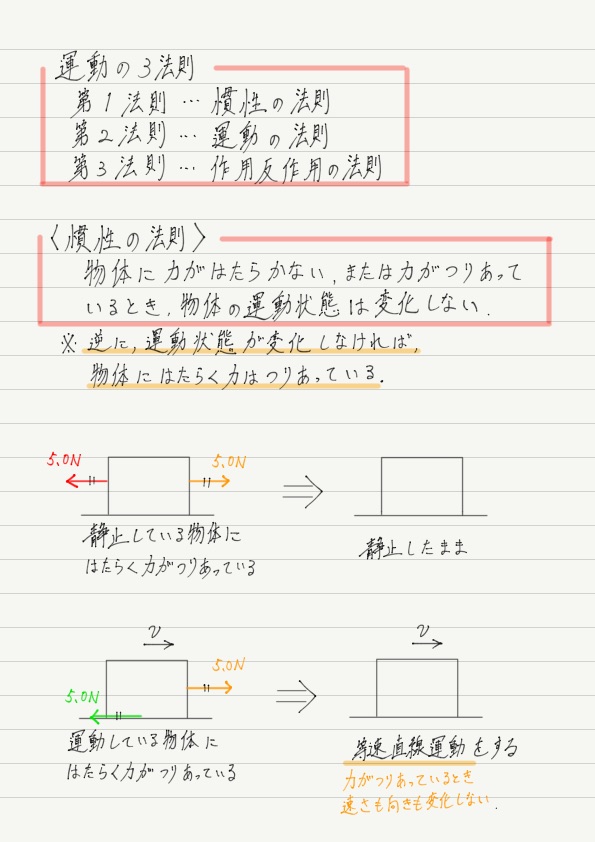 運動の3法則
第1法則…慣性の法則
第2法則…運動の法則
第3法則…作用反作用の法則
〈慣性の法則〉
物体に力がはたらかない,または力がつりあって
いるとき,物体の運動状態は変化しない.
※ 逆に,運動状態が変化しなければ,
物体にはたらく力はつりあっている.
5.0N 5.0N
静止している物体に
はたらく力がつりあっている
静止したまま
v v
5.0N
5.0N
運動している物体に
はたらく力がつりあっている
等速直線運動をする
力がつりあっているとき
速さも向きも変化しない.